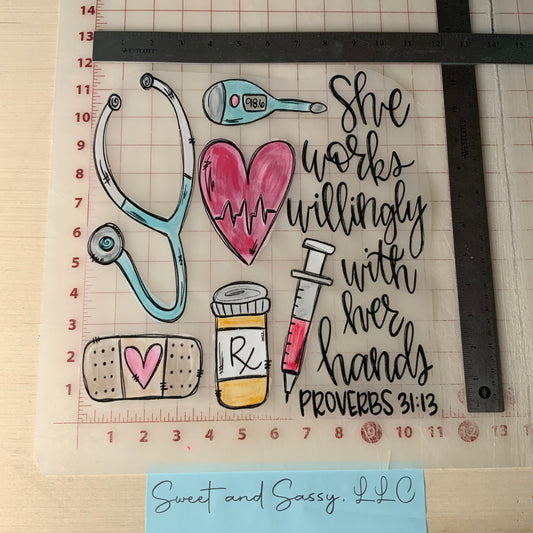 She
works
willingly
with
her
hands
PROVERBS 31:13
98.6
Rx
Sweet and Sassy, LLC
WESTCOTT
WESTCOTT
1 2 3 4 5 6 7 8 9 10 11 12 13 14 15
14
13
12
11
10
9
8
7
6
5
4
3
2
1
1 2 3 4 5 6 7 8 9 10 11 12 13